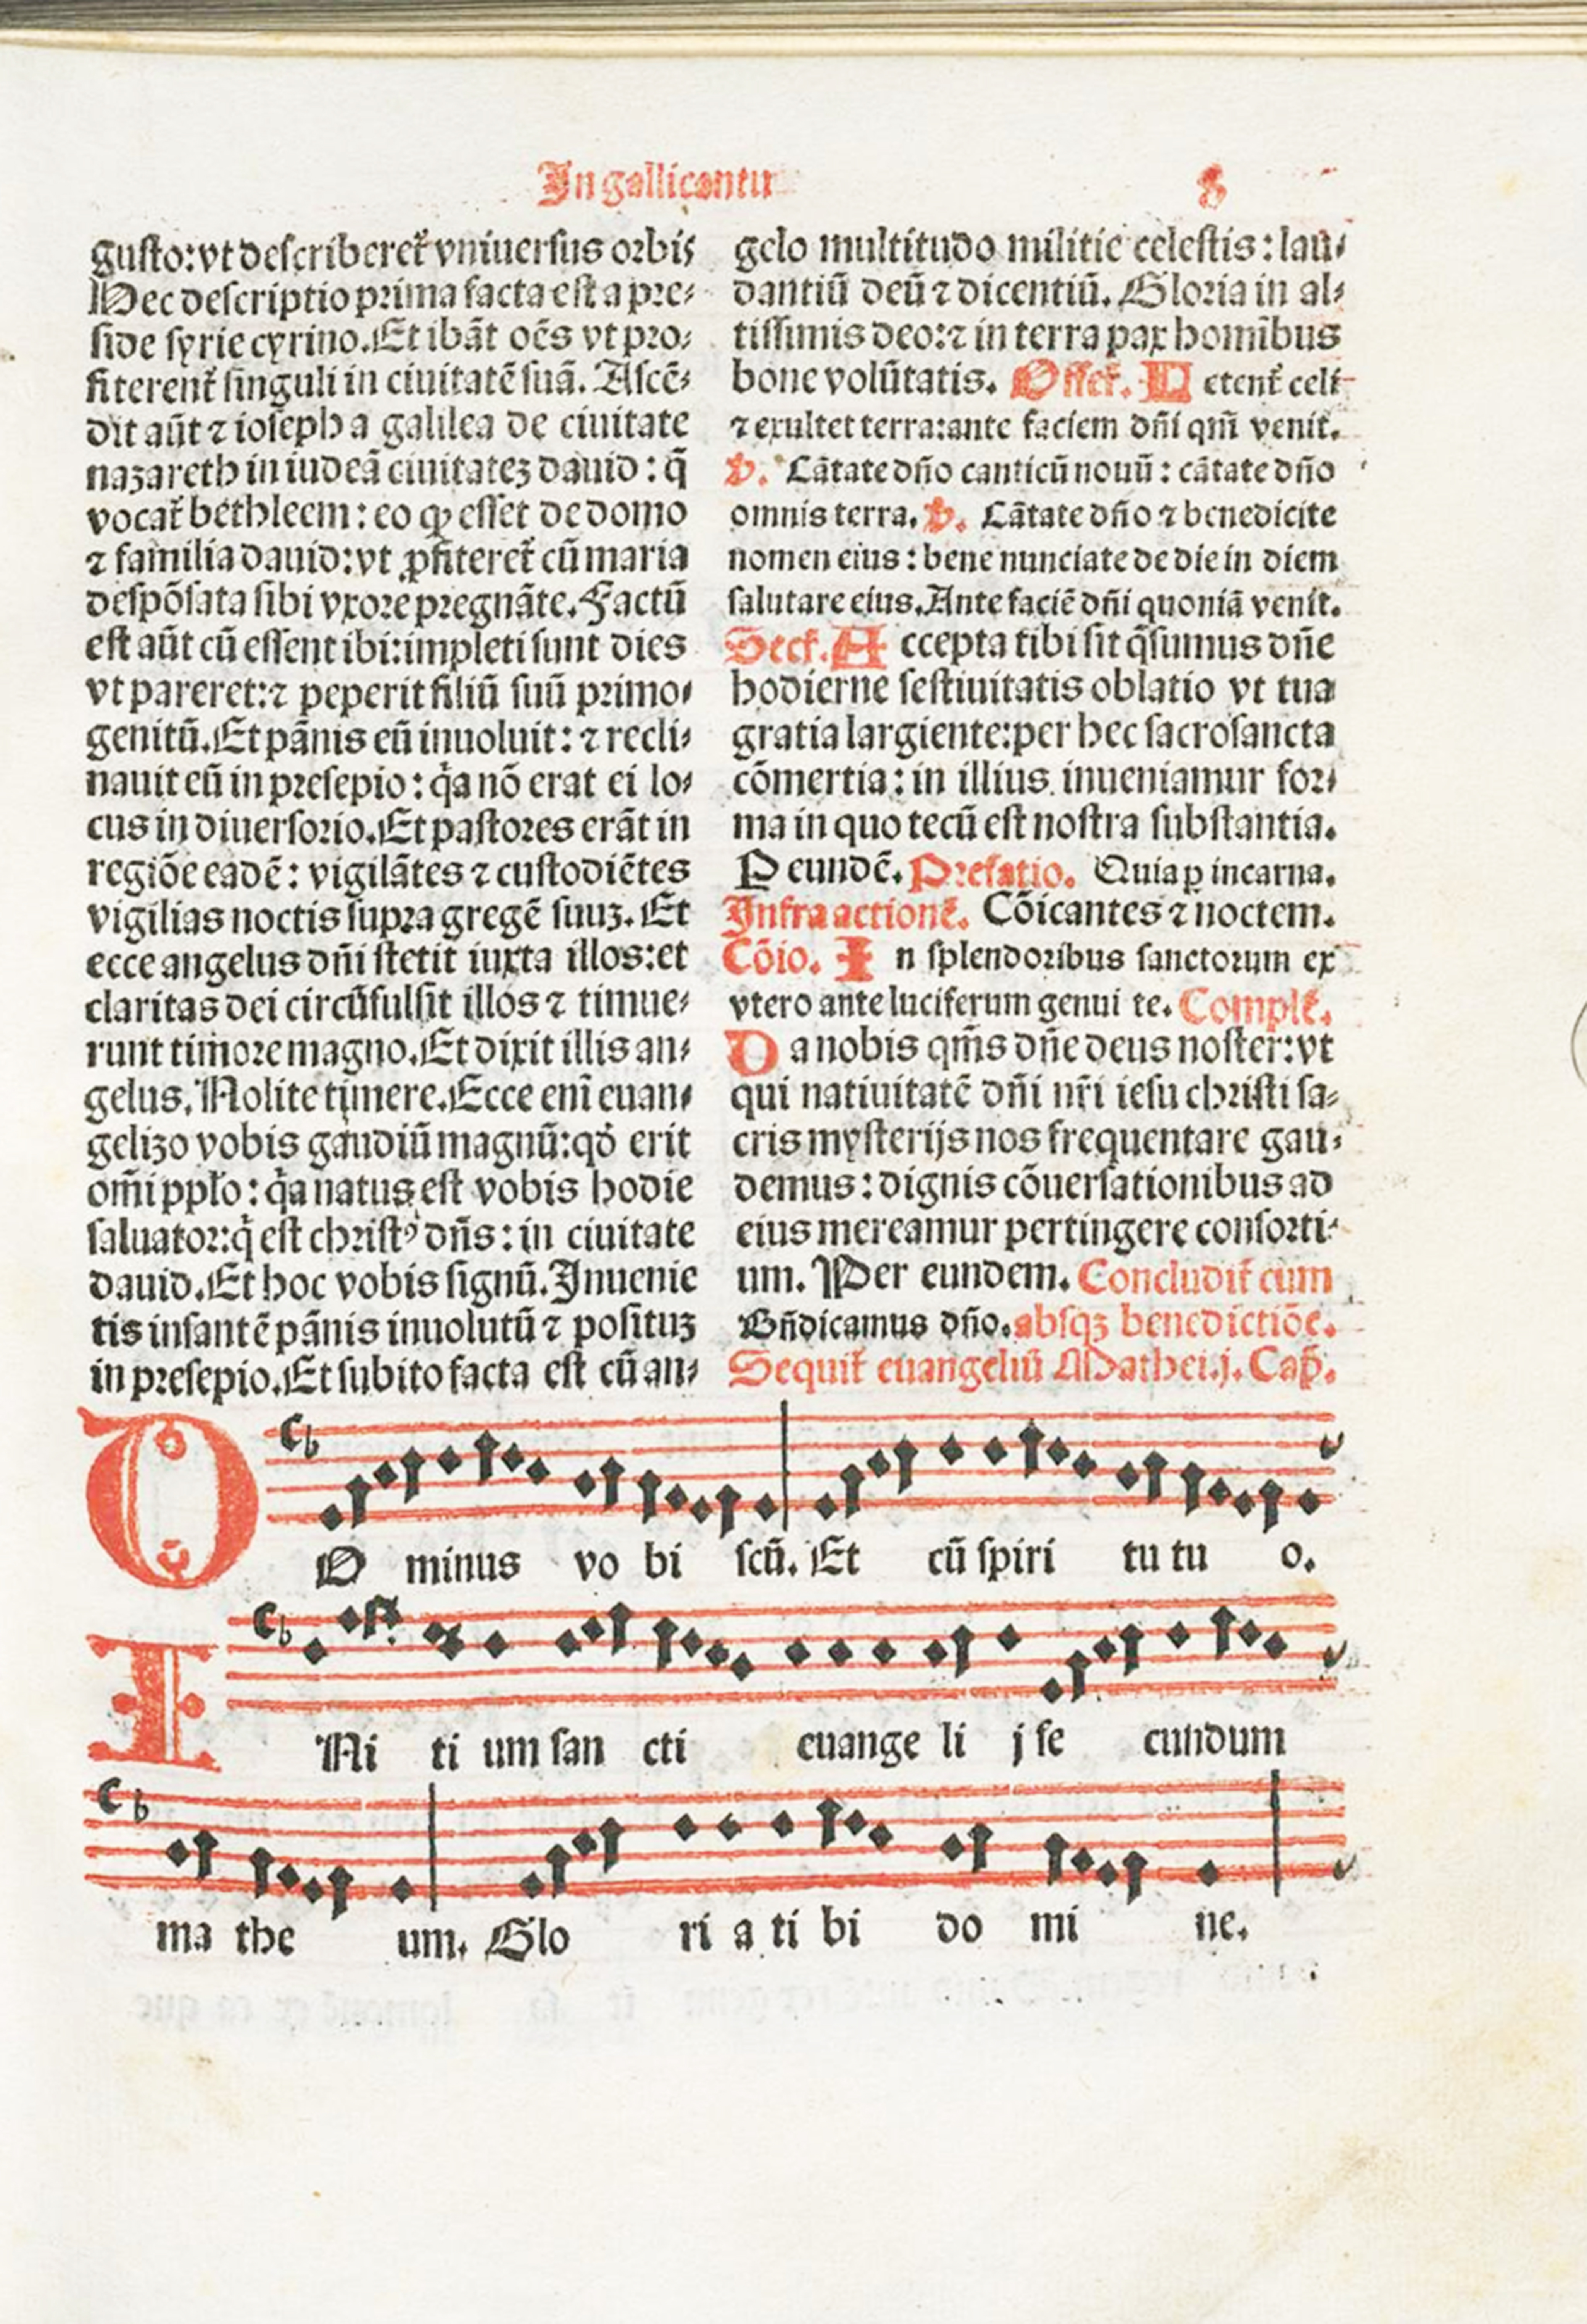 In gallicantu
8
gusto:vt describeret᷑ vniuersus orbis
Hec descriptio prima facta est a pre-
side syrie cyrino. Et ibāt oēs vt pro-
fiterent᷑ singuli in ciuitatē suā. Ascē-
dit aūt ⁊ ioseph a galilea de ciuitate
nazareth in iudeā ciuitatez dauid : q̄
vocat᷑ bethleem : eo ꝙ esset de domo
⁊ familia dauid:vt ꝓfiteret᷑ cū maria
despōsata sibi vxore pregnāte. Factū
est aūt cū essent ibi:impleti sunt dies
vt pareret:⁊ peperit filiū suū primo-
genitū. Et pānis eū inuoluit : ⁊ recli-
nauit eū in presepio : q̇a nō erat ei lo-
cus in diuersorio. Et pastores erāt in
regiōe eadē : vigilātes ⁊ custodiētes
vigilias noctis supra gregē suuz. Et
ecce angelus dn̄i stetit iuxta illos:et
claritas dei circūfulsit illos ⁊ timue-
runt timore magno. Et dixit illis an-
gelus. Nolite timere. Ecce enī euan-
gelizo vobis gaudiū magnū:qd̓ erit
om̄i pplo : q̇a natus est vobis hodie
saluator:q̇ est christꝰ dn̄s : in ciuitate
dauid. Et hoc vobis signū. Inuenie
tis infantē pānis inuolutū ⁊ posituz
in presepio. Et subito facta est cū an-
gelo multitudo militie celestis : lau-
dantiū deū ⁊ dicentiū. Gloria in al-
tissimis deo:⁊ in terra pax homībus
bone volūtatis. Offer᷑. L etent᷑ celi
⁊ exultet terra:ante faciem dn̄i qm̄ venit.
v. Cātate dn̄o canticū nouū : cātate dn̄o
omnis terra. v. Cātate dn̄o ⁊ benedicite
nomen eius : bene nunciate de die in diem
salutare eius. Ante faciē dn̄i quoniā venit.
Secr᷑. A ccepta tibi sit q̄sumus dn̄e
hodierne festiuitatis oblatio vt tua
gratia largiente:per hec sacrosancta
cōmertia : in illius inueniamur for-
ma in quo tecū est nostra substantia.
P eundē. Prefatio. Quia ꝑ incarna.
Infra actionē. Cōicantes ⁊ noctem.
Cōio. I n splendoribus sanctorum ex
vtero ante luciferum genui te. Comple᷑.
D a nobis qm̄s dn̄e deus noster:vt
qui natiuitatē dn̄i nr̄i iesu christi sa-
cris mysterijs nos frequentare gau-
demus : dignis cōuersationibus ad
eius mereamur pertingere consorti-
um. Per eundem. Concludit᷑ cum
Bn̄dicamus dn̄o. absqꝫ benedictiōe.
Sequit᷑ euangeliū Mathei.j. Cap̄.
D O minus vo bi scū. Et cū spiri tu tu o.
I Ni ti um san cti euange li j se cundum
ma the um. Glo ri a ti bi do mi ne.